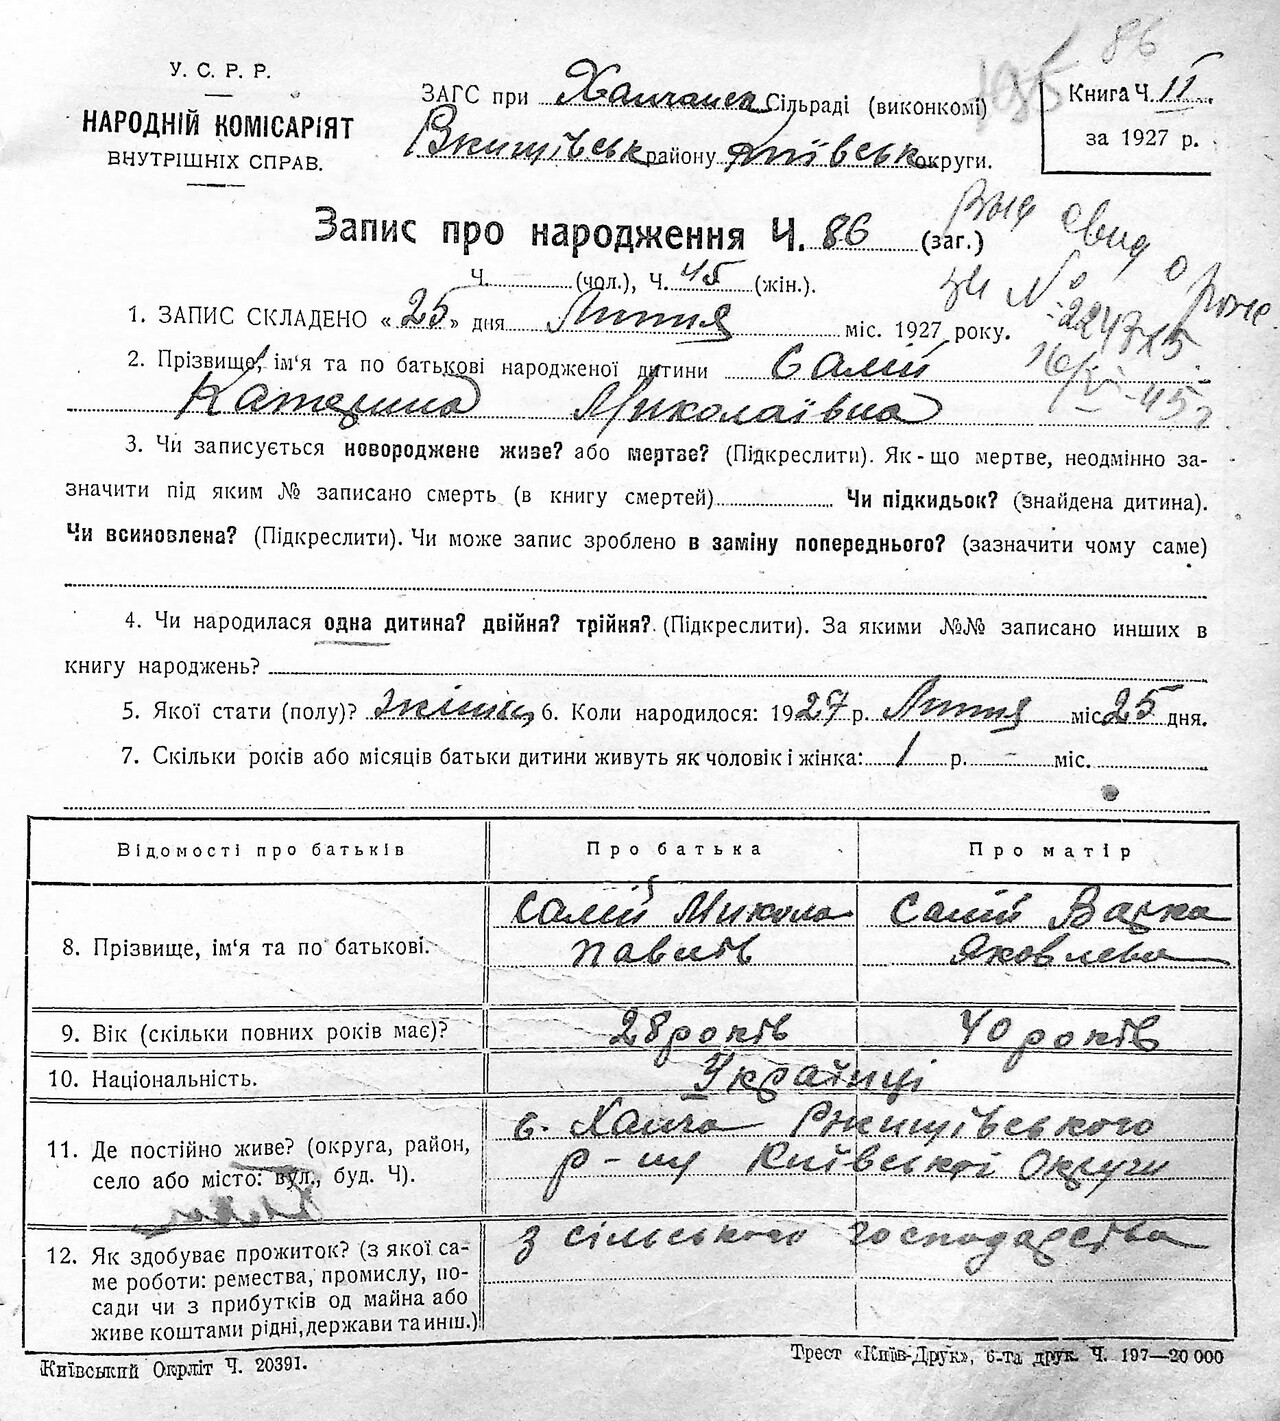 86
195
У. С. Р. Р.
НАРОДНІЙ КОМІСАРІЯТ
ВНУТРІШНІХ СПРАВ.
ЗАГС при Халчанск Сільраді (виконкомі)
Ржищівськ району Київськ округи.
Книга Ч. II
за 1927 р.
Запис про народження Ч. 86 (заг.)
Ч. — (чол.), Ч. 45 (жін.).
Выд свид о рожд.
за № 224315
16/VI-45 г
1. ЗАПИС СКЛАДЕНО «25» дня Липня міс. 1927 року.
2. Прізвище, ім'я та по батькові народженої дитини Салій
Катерина Миколаївна
3. Чи записується новороджене живе? або мертве? (Підкреслити). Як-що мертве, неодмінно за-
значити під яким № записано смерть (в книгу смертей) Чи підкидьок? (знайдена дитина).
Чи всиновлена? (Підкреслити). Чи може запис зроблено в заміну попереднього? (зазначити чому саме)
4. Чи народилася одна дитина? двійня? трійня? (Підкреслити). За якими №№ записано инших в
книгу народжень?
5. Якої стати (полу)? жіноч 6. Коли народилося: 1927 р. Липня міс. 25 дня.
7. Скільки років або місяців батьки дитини живуть як чоловік і жінка: 1 р. — міс.
Відомості про батьків Про батька Про матір
8. Прізвище, ім'я та по батькові. Салій Микола Павлів Салій Варка Яковлева
9. Вік (скільки повних років має)? 28 років 40 років
10. Національність. Українці
11. Де постійно живе? (округа, район,
село або місто: вул., буд. Ч).
с. Халча Ржищівського
р-ну Київської Округи
12. Як здобуває прожиток? (з якої са-
ме роботи: ремества, промислу, по-
сади чи з прибутків од майна або
живе коштами рідні, держави та инш.)
з сільського господарства
Київський Окрліт Ч. 20391.
Трест «Київ-Друк», 6-та друк. Ч. 197—20 000